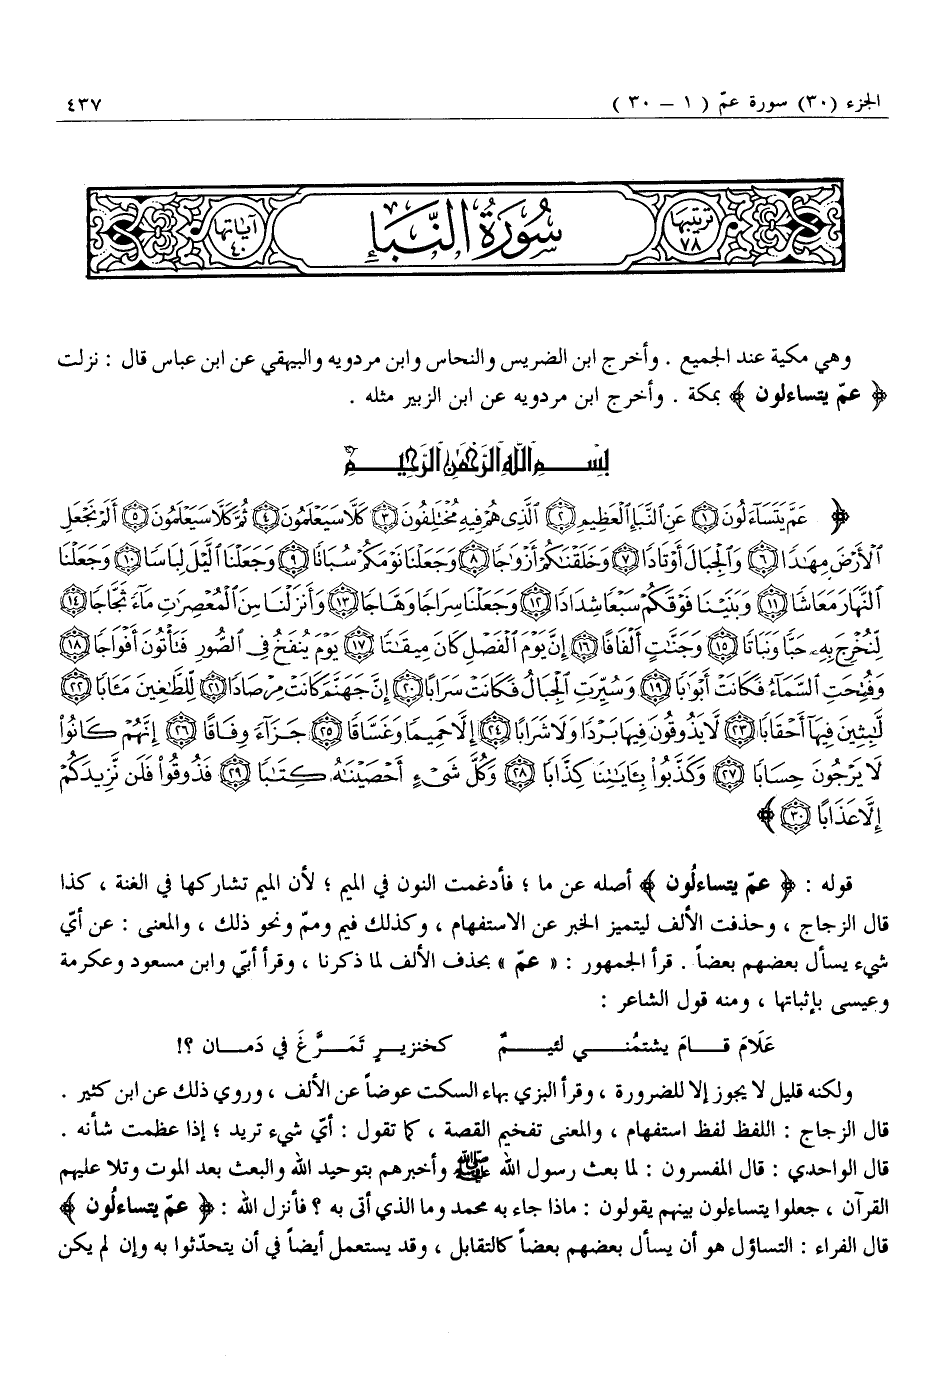 الجزء (٣٠) سورة عمّ ( ١ – ٣٠ ) ٤٣٧
ترتيبها ٧٨ سُورَةُ النَّبَإِ آياتها ٤٠
وهي مكية عند الجميع . وأخرج ابن الضريس والنحاس وابن مردويه والبيهقي عن ابن عباس قال : نزلت
﴿ عمّ يتساءلون ﴾ بمكة . وأخرج ابن مردويه عن ابن الزبير مثله .
بِسْمِ اللَّهِ الرَّحْمَٰنِ الرَّحِيمِ
﴿ عَمَّ يَتَسَآءَلُونَ ١ عَنِ ٱلنَّبَإِ ٱلْعَظِيمِ ٢ ٱلَّذِى هُمْ فِيهِ مُخْتَلِفُونَ ٣ كَلَّا سَيَعْلَمُونَ ٤ ثُمَّ كَلَّا سَيَعْلَمُونَ ٥ أَلَمْ نَجْعَلِ
ٱلْأَرْضَ مِهَٰدًا ٦ وَٱلْجِبَالَ أَوْتَادًا ٧ وَخَلَقْنَٰكُمْ أَزْوَٰجًا ٨ وَجَعَلْنَا نَوْمَكُمْ سُبَاتًا ٩ وَجَعَلْنَا ٱلَّيْلَ لِبَاسًا ١٠ وَجَعَلْنَا
ٱلنَّهَارَ مَعَاشًا ١١ وَبَنَيْنَا فَوْقَكُمْ سَبْعًا شِدَادًا ١٢ وَجَعَلْنَا سِرَاجًا وَهَّاجًا ١٣ وَأَنزَلْنَا مِنَ ٱلْمُعْصِرَٰتِ مَآءً ثَجَّاجًا ١٤
لِّنُخْرِجَ بِهِۦ حَبًّا وَنَبَاتًا ١٥ وَجَنَّٰتٍ أَلْفَافًا ١٦ إِنَّ يَوْمَ ٱلْفَصْلِ كَانَ مِيقَٰتًا ١٧ يَوْمَ يُنفَخُ فِى ٱلصُّورِ فَتَأْتُونَ أَفْوَاجًا ١٨
وَفُتِحَتِ ٱلسَّمَآءُ فَكَانَتْ أَبْوَٰبًا ١٩ وَسُيِّرَتِ ٱلْجِبَالُ فَكَانَتْ سَرَابًا ٢٠ إِنَّ جَهَنَّمَ كَانَتْ مِرْصَادًا ٢١ لِّلطَّٰغِينَ مَـَٔابًا ٢٢
لَّٰبِثِينَ فِيهَآ أَحْقَابًا ٢٣ لَّا يَذُوقُونَ فِيهَا بَرْدًا وَلَا شَرَابًا ٢٤ إِلَّا حَمِيمًا وَغَسَّاقًا ٢٥ جَزَآءً وِفَاقًا ٢٦ إِنَّهُمْ كَانُوا۟
لَا يَرْجُونَ حِسَابًا ٢٧ وَكَذَّبُوا۟ بِـَٔايَٰتِنَا كِذَّابًا ٢٨ وَكُلَّ شَىْءٍ أَحْصَيْنَٰهُ كِتَٰبًا ٢٩ فَذُوقُوا۟ فَلَن نَّزِيدَكُمْ
إِلَّا عَذَابًا ٣٠ ﴾
قوله : ﴿ عمّ يتساءلُون ﴾ أصله عن ما ؛ فأدغمت النون في الميم ؛ لأن الميم تشاركها في الغنة ، كذا
قال الزجاج ، وحذفت الألف ليتميز الخبر عن الاستفهام ، وكذلك فيم وممّ ونحو ذلك ، والمعنى : عن أيّ
شيء يسأل بعضهم بعضاً . قرأ الجمهور : « عمّ » بحذف الألف لما ذكرنا ، وقرأ أبيّ وابن مسعود وعكرمة
وعيسى بإثباتها ، ومنه قول الشاعر :
عَلَامَ قَامَ يشتمُني لئيمٌ كخنزيرٍ تَمَرَّغَ في دَمان ؟!
ولكنه قليل لا يجوز إلا للضرورة ، وقرأ البزي بهاء السكت عوضاً عن الألف ، وروي ذلك عن ابن كثير .
قال الزجاج : اللفظ لفظ استفهام ، والمعنى تفخيم القصة ، كما تقول : أيّ شيء تريد ؛ إذا عظمت شأنه .
قال الواحدي : قال المفسرون : لما بعث رسول الله ﷺ وأخبرهم بتوحيد الله والبعث بعد الموت وتلا عليهم
القرآن ، جعلوا يتساءلون بينهم يقولون : ماذا جاء به محمد وما الذي أتى به ؟ فأنزل الله : ﴿ عمّ يتساءلُون ﴾
قال الفراء : التساؤل هو أن يسأل بعضهم بعضاً كالتقابل ، وقد يستعمل أيضاً في أن يتحدّثوا به وإن لم يكن